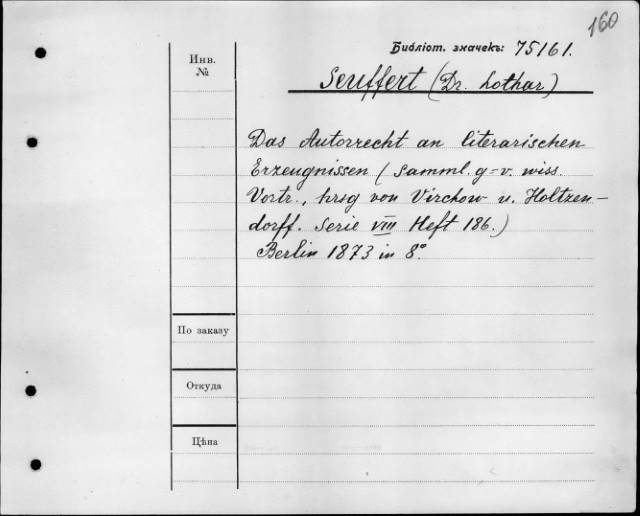 160
Библіот. значекъ: 75161.
Инв.
№
Seuffert (Dr. Lothar)
Das Autorrecht an literarischen
Erzeugnissen (Samml. g-v. wiss.
Vortr., hrsg von Virchow u. Holtzen-
dorff. Serie VIII Heft 186.)
Berlin 1873 in 8°.
По заказу
Откуда
Цѣна